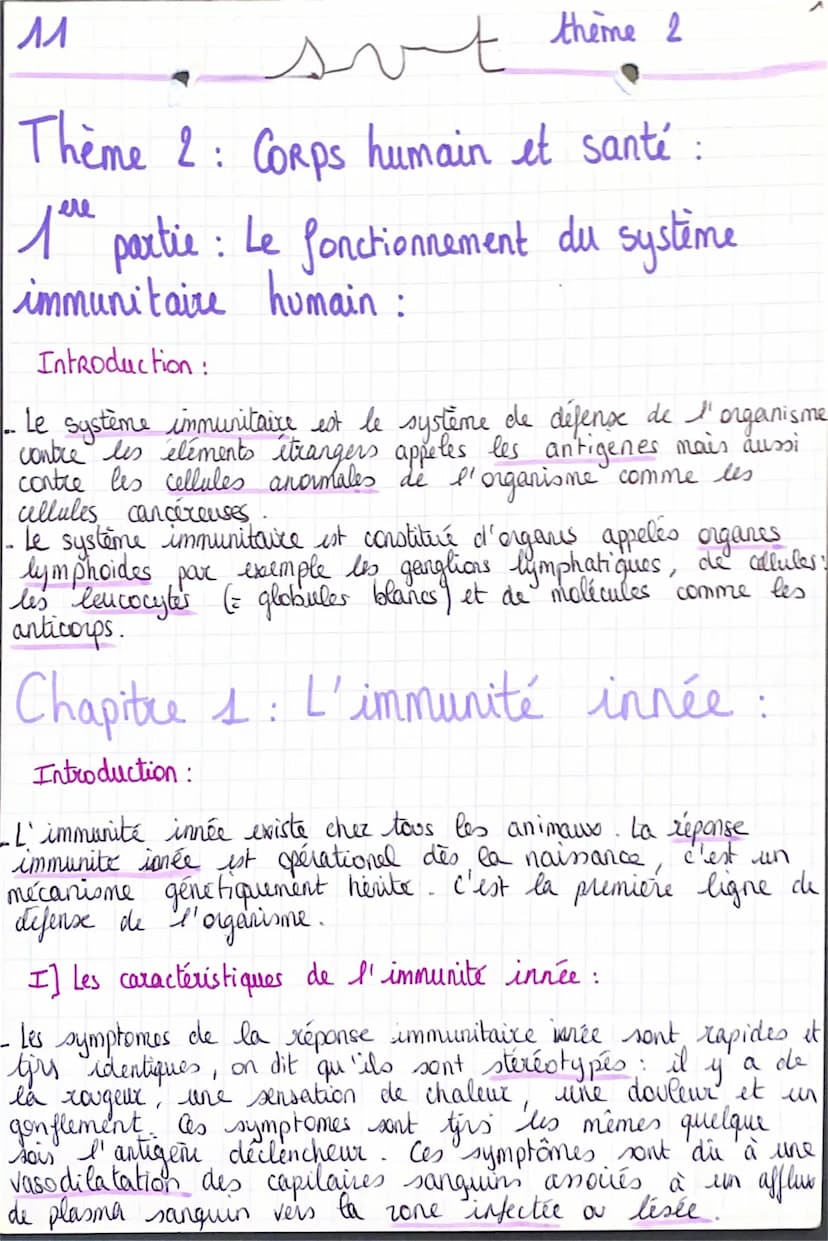 11 svt thème 2
Thème 2 : Corps humain et santé :
1ère partie : Le fonctionnement du système
immunitaire humain :
Introduction :
- Le système immunitaire est le système de défense de l'organisme
contre les éléments étrangers appelés les antigènes mais aussi
contre les cellules anormales de l'organisme comme les
cellules cancéreuses.
- Le système immunitaire est constitué d'organes appelés organes
lymphoïdes par exemple les ganglions lymphatiques, de cellules :
les leucocytes (= globules blancs) et de molécules comme les
anticorps.
Chapitre 1 : L'immunité innée :
Introduction :
- L'immunité innée existe chez tous les animaux. La réponse
immunité innée est opérationel dès la naissance, c'est un
mécanisme génétiquement hérité. C'est la première ligne de
défense de l'organisme.
I] Les caractéristiques de l'immunité innée :
- Les symptomes de la réponse immunitaire innée sont rapides et
tjrs identiques, on dit qu'ils sont stéréotypés : il y a de
la rougeur, une sensation de chaleur, une douleur et un
gonflement. Ces symptomes sont tjrs les mêmes quelque
sois l'antigène déclencheur. Ces symptômes sont dû à une
vasodilatation des capilaires sanguins associés à un afflux
de plasma sanguin vers la zone infectée ou lésée.